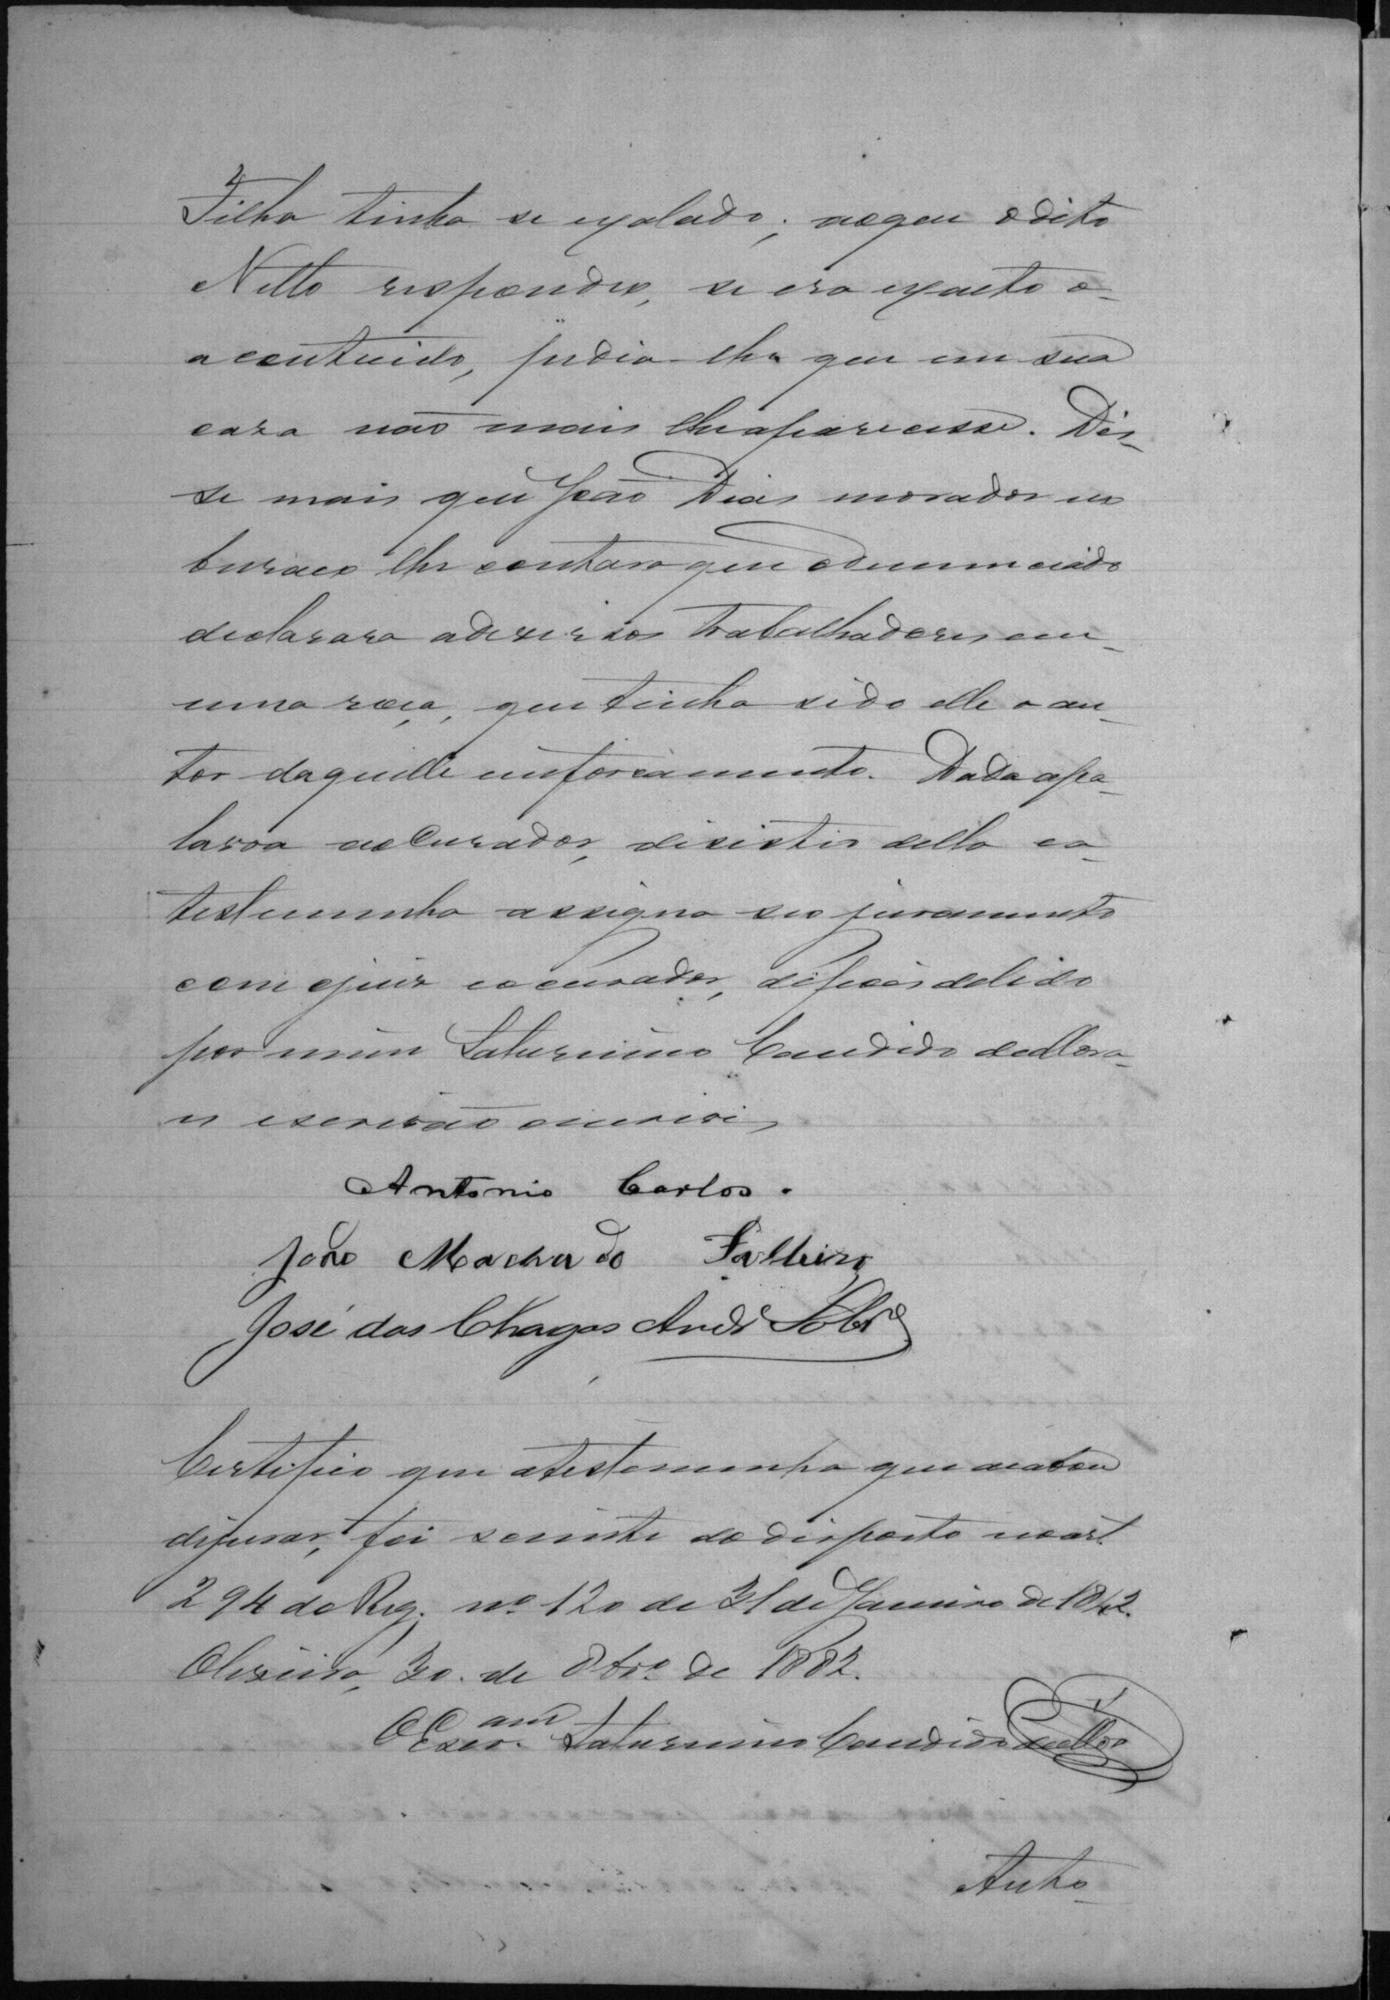 Filho tinha se exalado; ao que o dito
Netto respondeo, se era exacto o
acontecido, pedia-lhe que em sua
caza não mais lhe aparecesse. Dis-
se mais que João Dias morador no
buraco lhe contara que o denunciado
declarara a diversos trabalhadores em
uma roça, que tinha sido elle o au-
tor daquelle enforcamento. Dada a pa-
lavra ao Curador, desistio della e a
testemunha assigna seo juramento
com o juiz e o curador, depois de lido
por mim Saturnino Candido de Mora-
es escrivão o escrivi
Antonio Carlos.
João Machado
José das Chagas Andr.e Sobr.o
Certifico que a testemunha que acabou
de jurar, foi sciente do disposto no art.
294 do Reg. nº 120 de 31 de Janeiro de 1842.
Oliveira, 30. de 8br.o de 1882.
O Escr.am Saturnino Candido de Mor